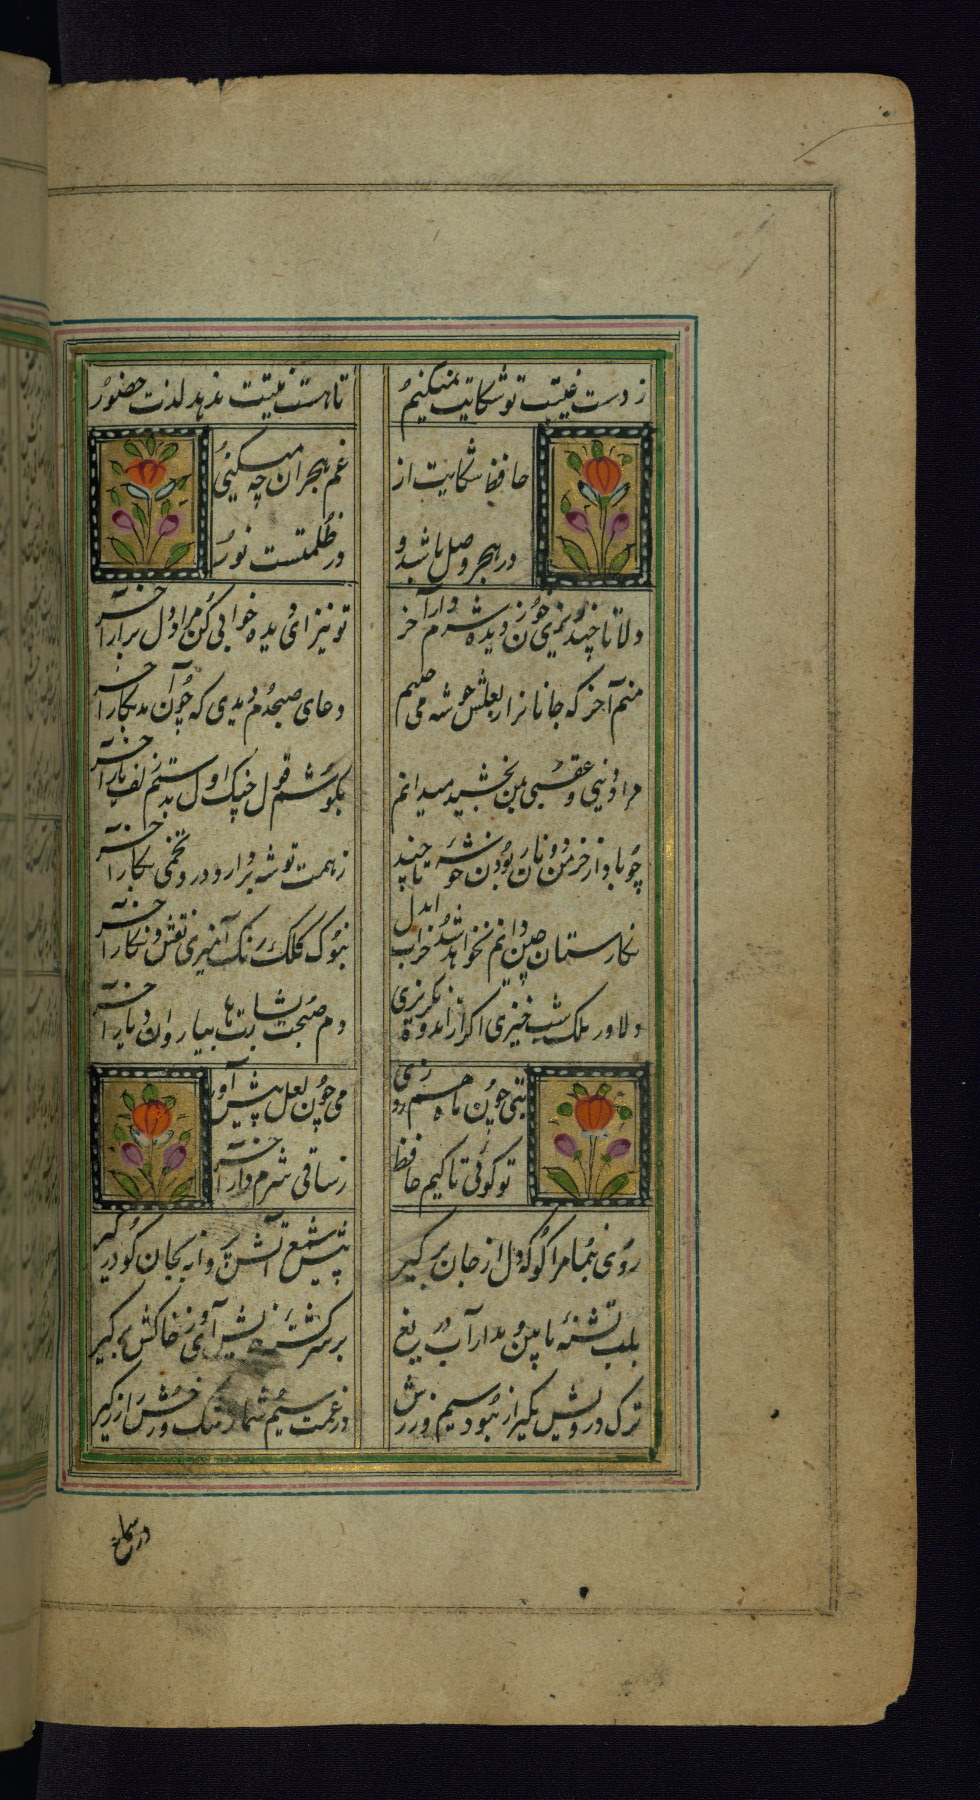 ز دست غیبت تو شکایت نمیکنم تا هست غیبت ندهد لذت حضور
حافظ شکایت از غم هجران چه میکنی
در هجر وصل باشد و در ظلمتست نور
دلا تا چند خون ریزی ز دیده شرم دار آخر تو نیز ای دیده خوابی کن مراد دل برار آخر
منم آخر که جانانرا ز لعلش خوشه می چینم دعای صبحدم دیدی که چون آمد بکار آخر
مراد دنیی و عقبی بمن بخشید میدانم بگوشم قول چنگ اول بدستم زلف یار آخر
چو باد از خرمن دونان ربودن خوشه تا چند ز همت توشه بردار و درو تخمی بکار آخر
نکارستان چین دانم نخواهد شد خراب ایدل بنوک کلک رنک آمیزی نقش و نکار آخر
دلا در ملک شب خیزی اکر از اندوه نکریزی دم صبحت بشارتها بیارد زان دیار آخر
بتی چون ماه می چون لعل پیش آورد
تو کوئی تاکیم حافظ ز ساقی شرم دار آخر
روی بنما مرا کو که دل از جان برکیر پیش شمع آتش پروانه بجان کو درکیر
بر لب تشنه ما بین و مدار آب دریغ بر سر کشته خویش آی ز خاکش برکیر
ترک درویش مکیر ار نبود سیم و زرش در غمت سیم شمار اشک و رخش را زر کیر
در سماع